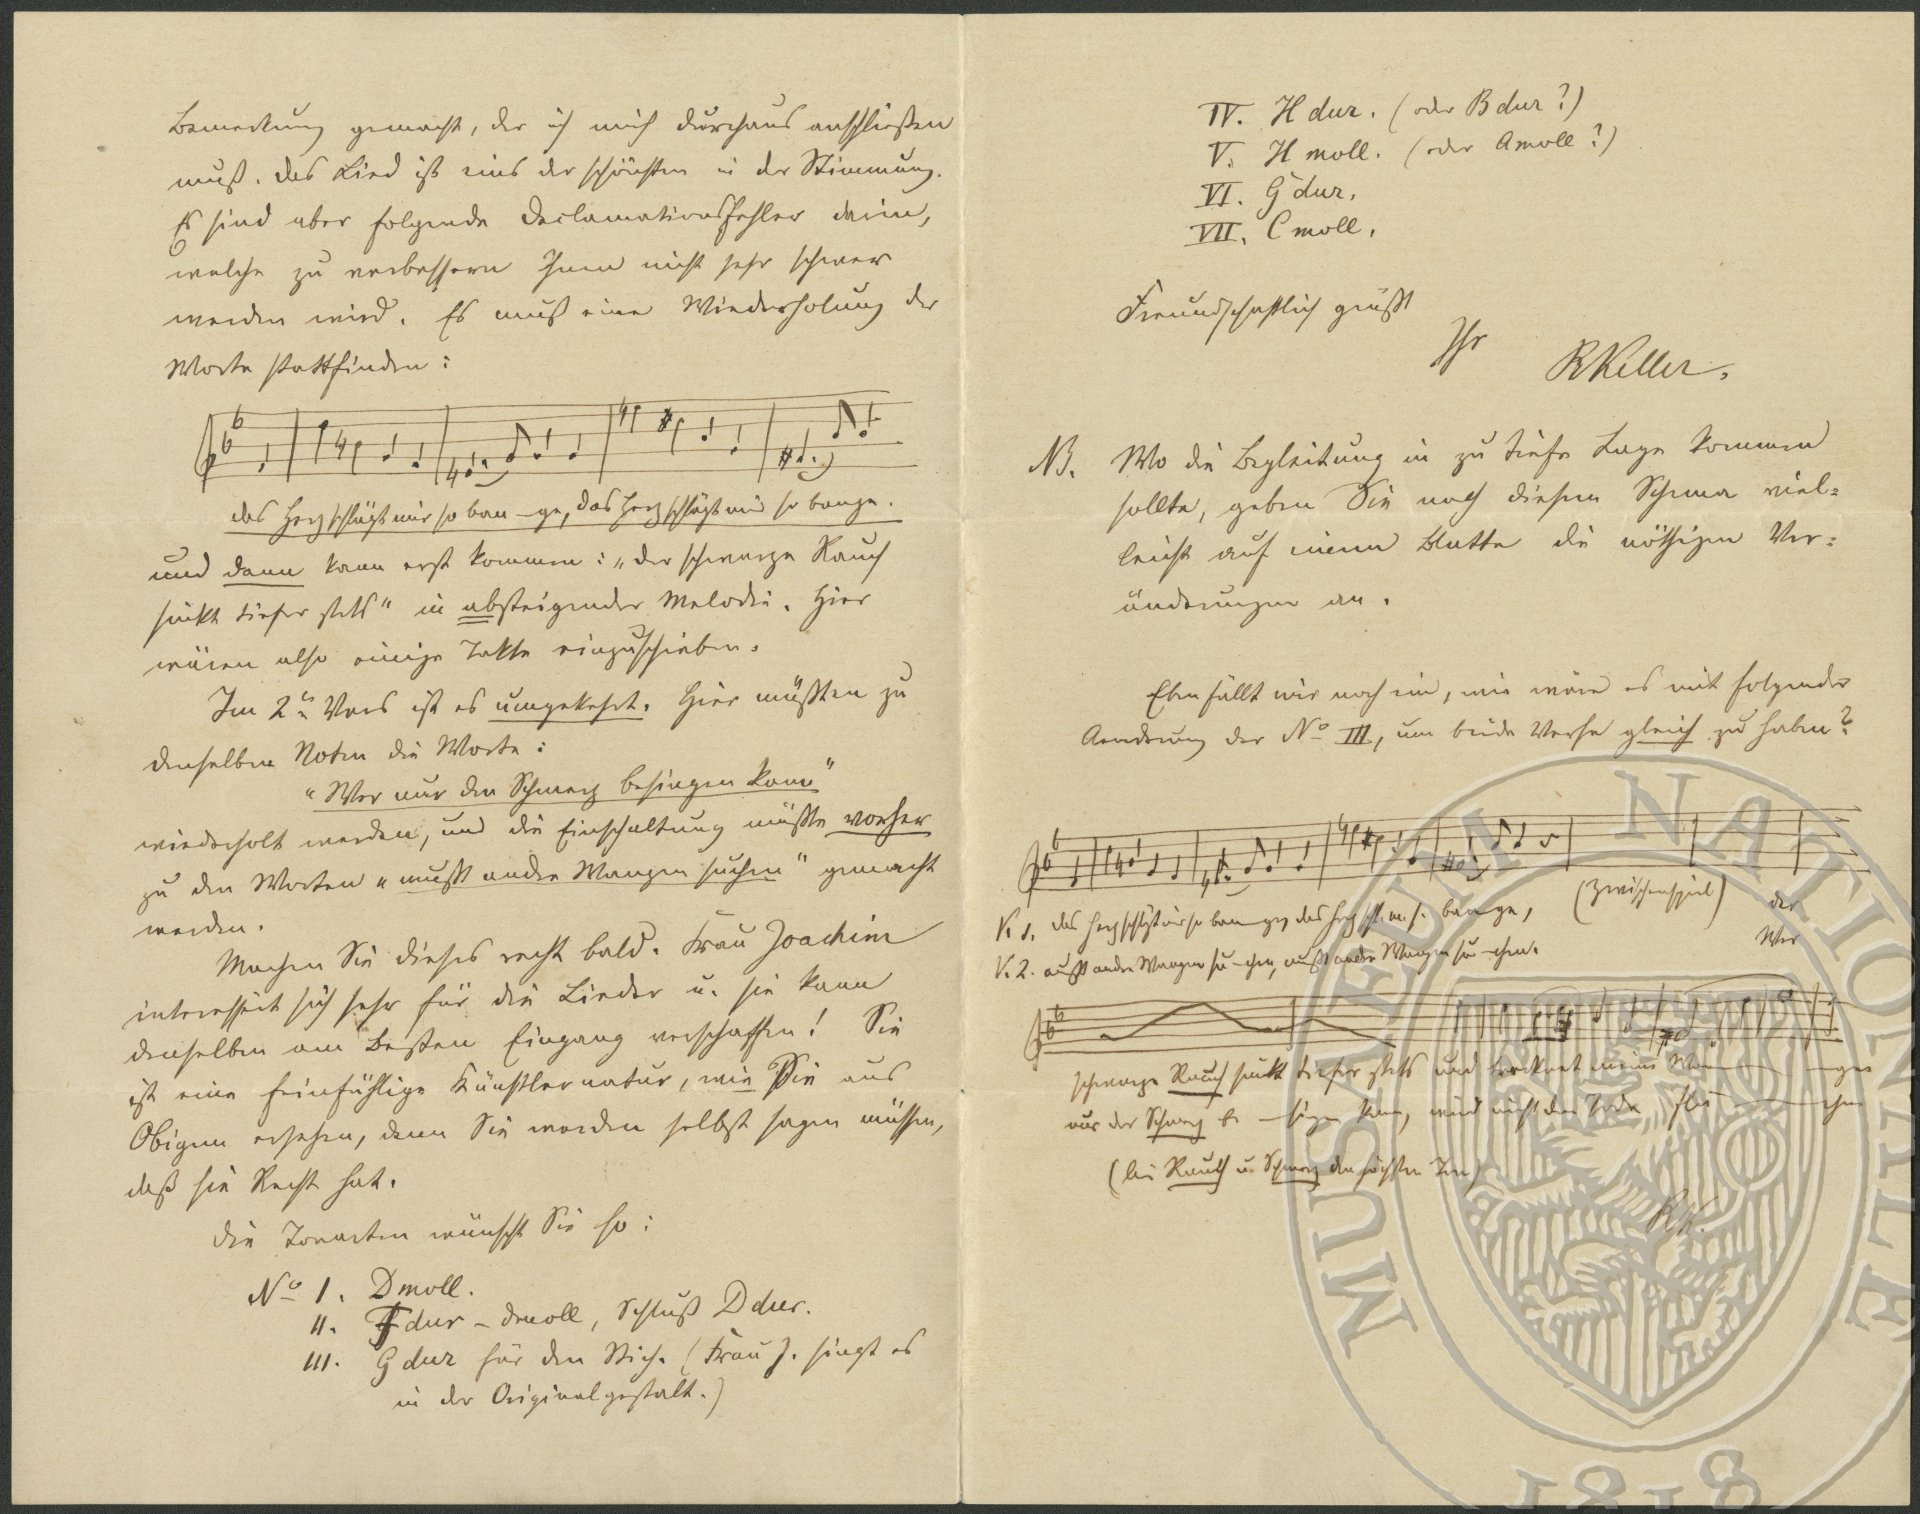 Bemerkung gemacht, der ich mich durchaus anschließen
muß. Das Lied ist eins der schönsten in der Stimmung.
Es sind aber folgende Declamationsfehler darin,
welche zu verbessern Ihnen nicht sehr schwer
werden wird. Es muß eine Wiederholung der
Worte stattfinden:
das Herz schlägt mir so ban-ge, das Herz schlägt mir so bange.
und dann kann erst kommen: „der schwarze Rauch
sinkt tiefer stets" in absteigender Melodie. Hier
wären also einige Takte einzuschieben.
Im 2ten Vers ist es umgekehrt. Hier müßten zu
denselben Noten die Worte:
"Wer nur den Schmerz besingen kann"
wiederholt werden, und die Einschaltung müßte vorher
zu den Worten „mußt andre Wangen suchen" gemacht
werden.
Machen Sie dieses recht bald. Frau Joachim
interessirt sich sehr für die Lieder u. sie kann
denselben am Besten Eingang verschaffen! Sie
ist eine feinfühlige Künstlernatur, wie Sie aus
Obigem ersehen, denn Sie werden selbst sagen müssen,
daß sie Recht hat.
Die Tonarten wünscht Sie so:
No I. Dmoll.
II. Fdur – dmoll, Schluß Ddur.
III. Gdur für den Stich. (Frau J. singt es
in der Originalgestalt.)
IV. Hdur. (oder Bdur?)
V. Hmoll. (oder Amoll?)
VI. Gdur.
VII. Cmoll.
Freundschaftlich grüßt
Ihr
RKeller.
NB. Wo die Begleitung in zu tiefe Lage kommen
sollte, geben Sie nach diesem Schema viel=
leicht auf einem Blatte die nöthigen Ver=
änderungen an.
Eben fällt mir noch ein, wie wäre es mit folgender
Aenderung der No III, um beide Verse gleich zu haben?
(Zwischenspiel)
V. 1. das Herz schlägt mir so ban-ge, das Herz schl. m. s. bange, der
V. 2. mußt andre Wangen su-chen, mußt andre Wangen su-chen. Wer
schwarze Rauch sinkt tiefer stets und trocknet meine Wan - gen
nur den Schmerz be-singen kann, wird nicht dem Tode - chen
(bei Rauch u. Schmerz den höchsten Ton)
RK.
MUSAEUM NATIONALE
1818